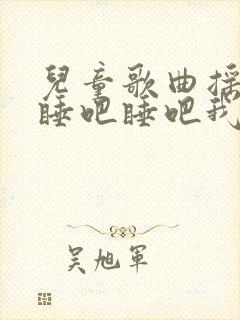 兒童歌曲摇
睡吧睡吧我
吴旭軍